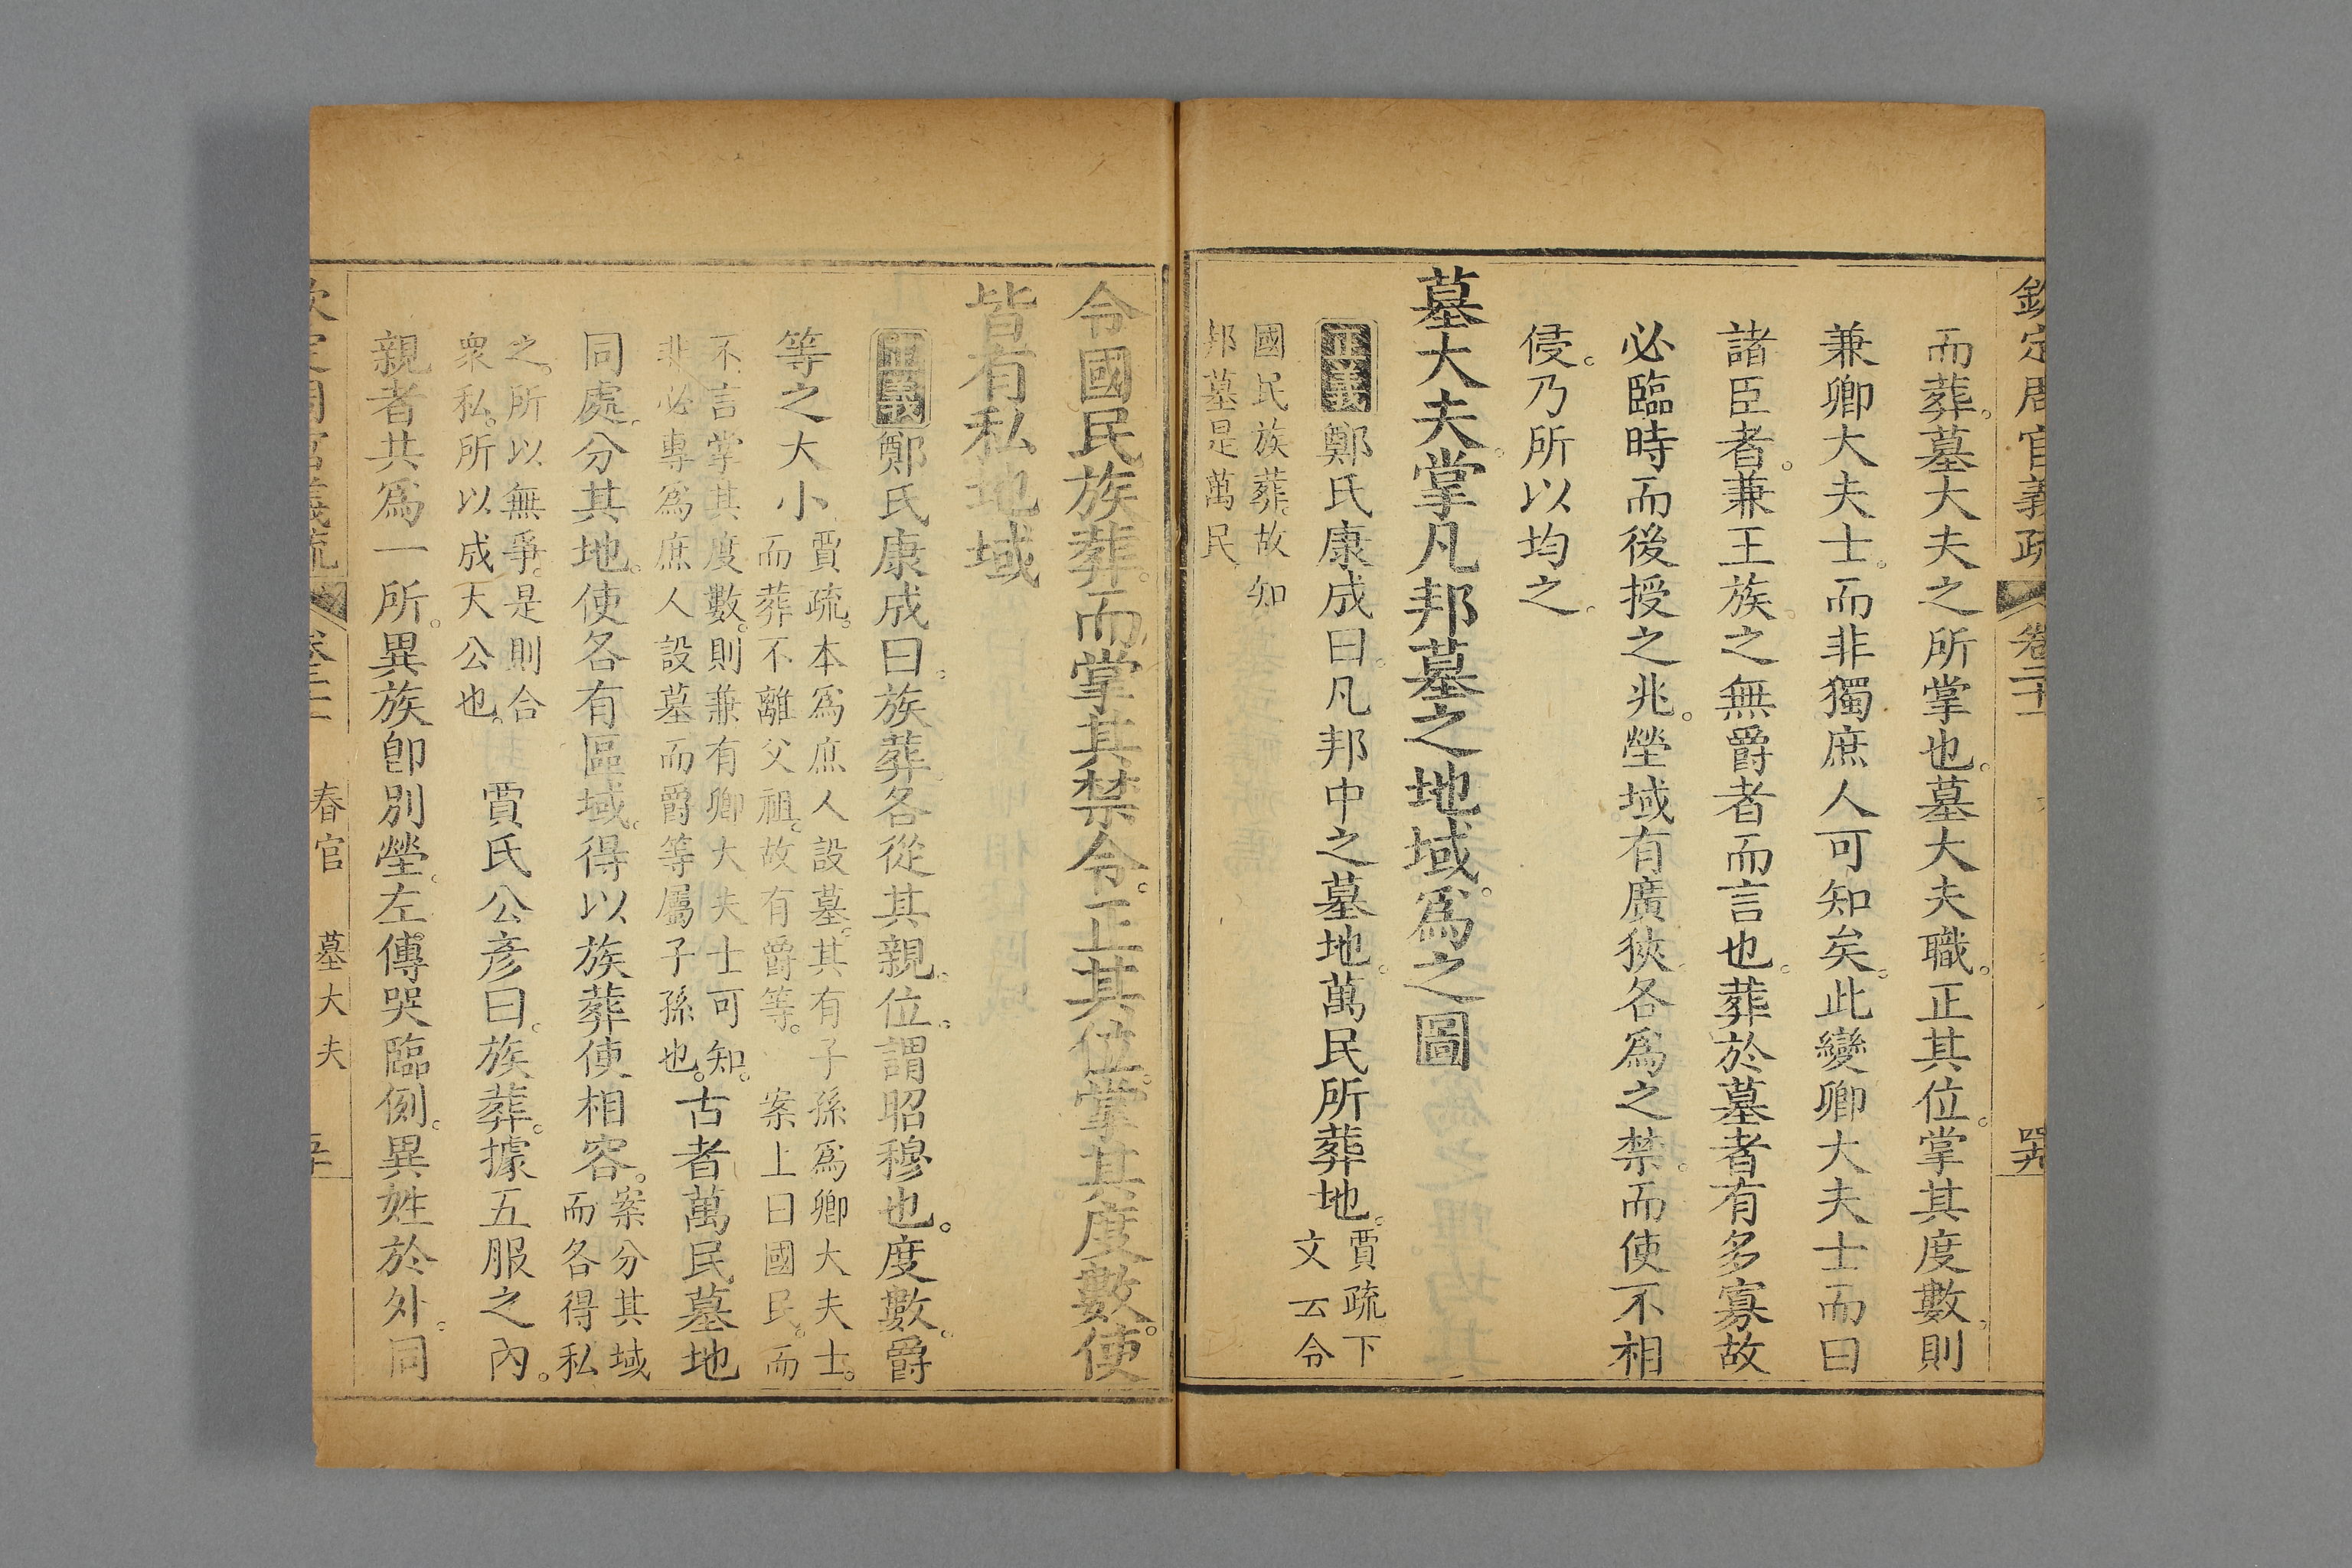 欽定周官義疏 卷二十一 四九
而葬。墓大夫之所掌也。墓大夫職。正其位。掌其度數。則
兼卿大夫士。而非獨庶人可知矣。此變卿大夫士而曰
諸臣者。兼王族。之無爵者而言也。葬於墓者有多寡故
必臨時而後授之兆。塋域有廣狹。各爲之禁。而使不相
侵。乃所以均之。
墓大夫。掌凡邦墓之地域。爲之圖
正義鄭氏康成曰。凡邦中之墓地。萬民所葬地。賈疏下
文云令
國民族葬。故知
邦墓是萬民
令國民族葬。而掌其禁令。正其位。掌其度數。使
皆有私地域
正義鄭氏康成曰。族葬。各從其親。位。謂昭穆也。度數。爵
等之大小賈疏。本爲庶人設墓。其有子孫爲卿大夫士。
而葬不離父祖。故有爵等。 案上曰國民。而
不言掌其度數。則兼有卿大夫士可知。
非必專爲庶人設墓而爵等屬子孫也。古者萬民墓地
同處。分其地。使各有區域。得以族葬使相容。案分其域
而各得私
之。所以無爭。是則合
衆私。所以成大公也。 賈氏公彥曰。族葬。據五服之內。
親者共爲一所。異族卽別塋。左傳哭臨例。異姓於外。同
欽定周官義疏 卷二十一 春官 墓大夫 五十